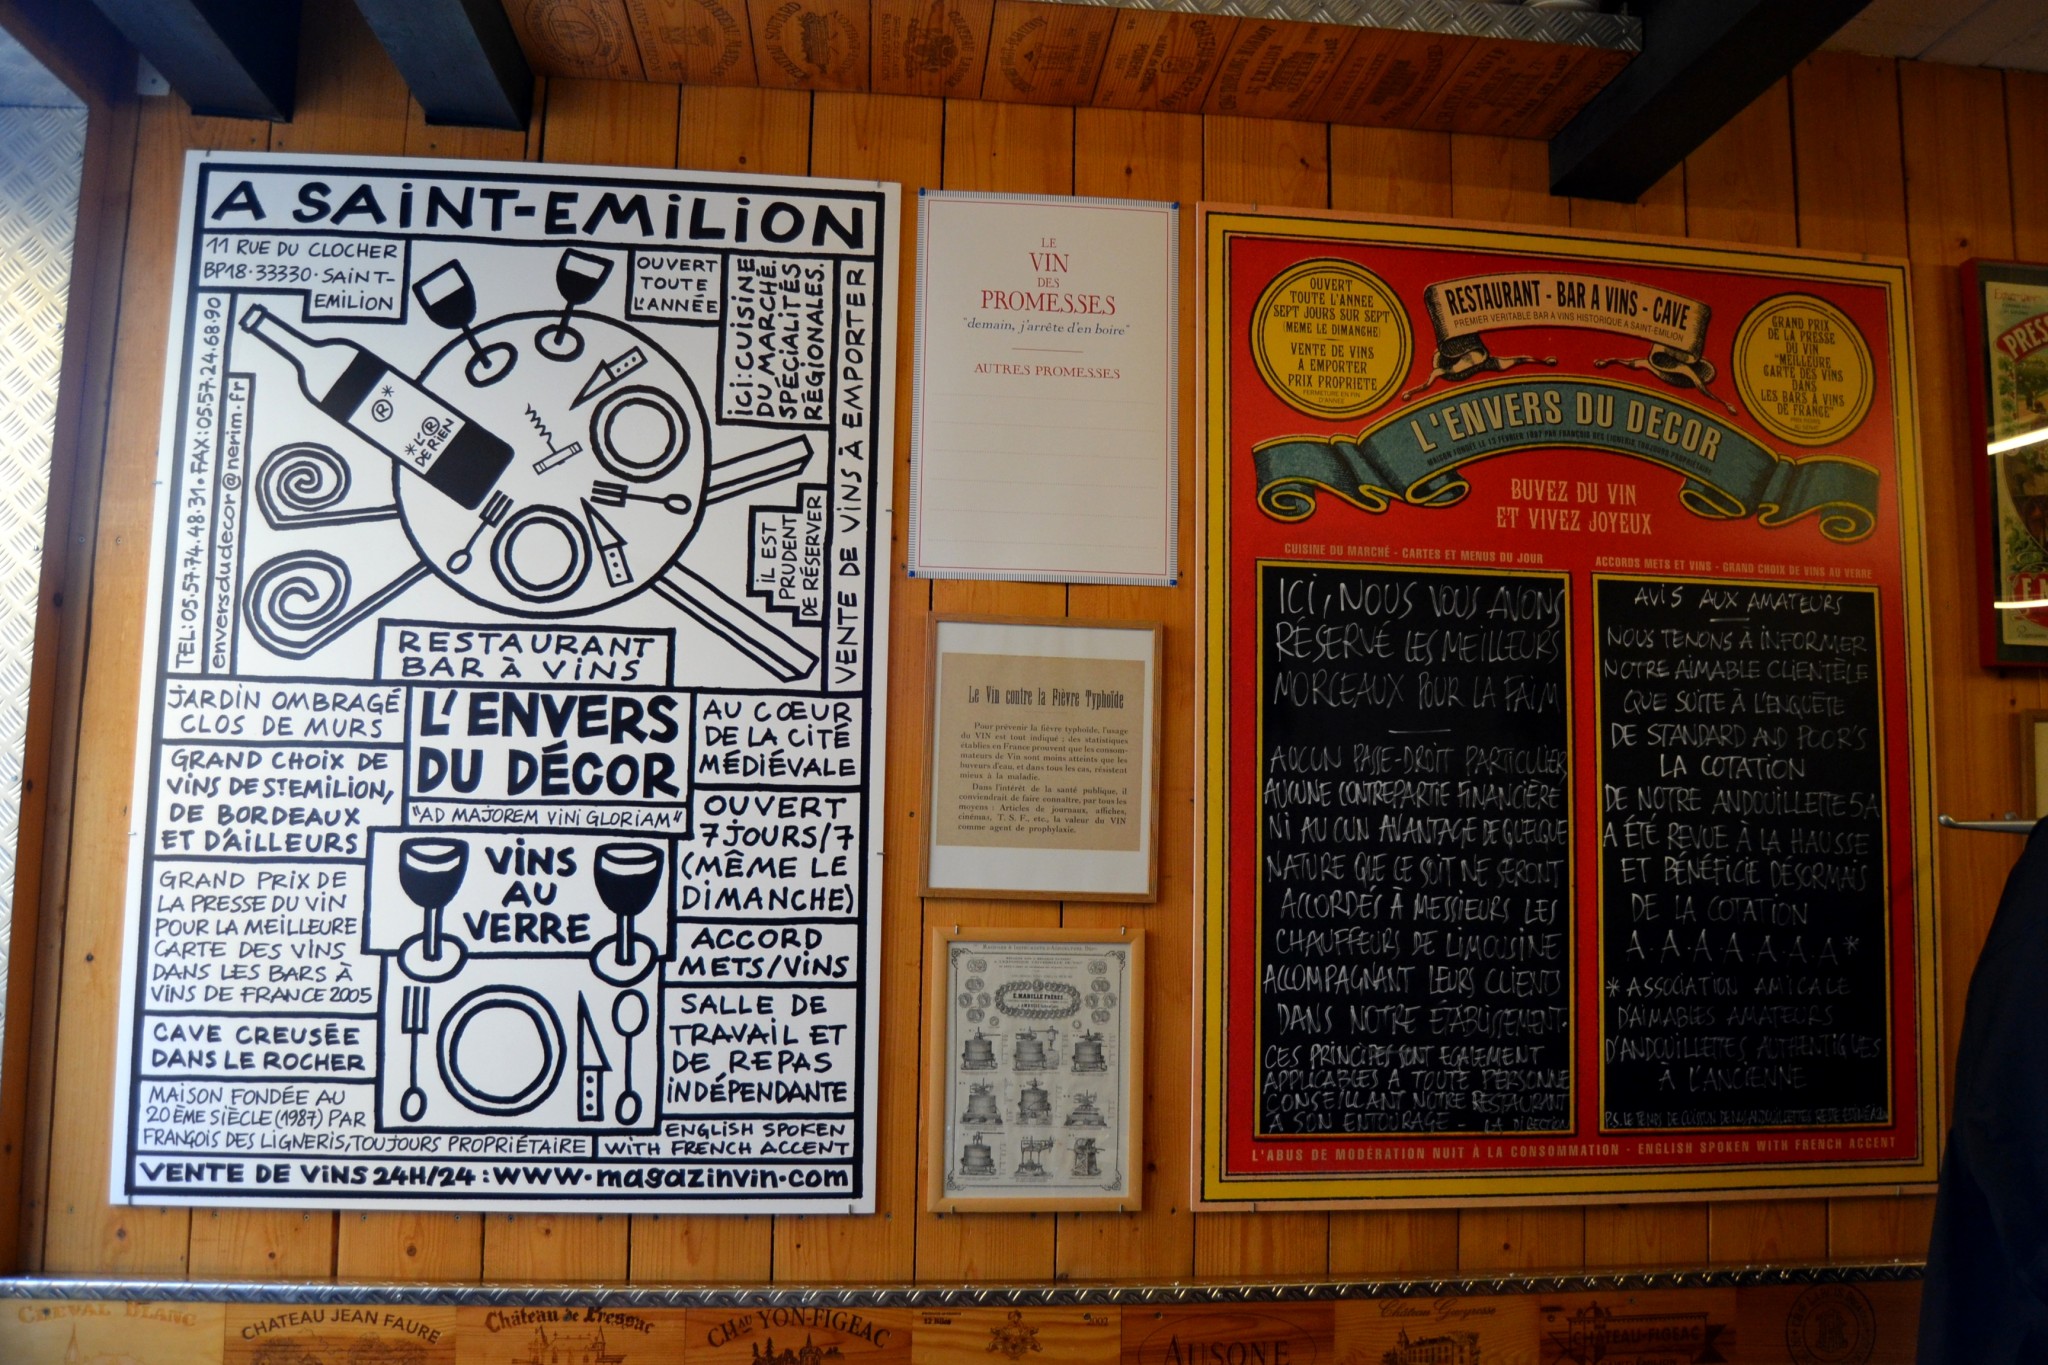 A SAiNT-EMiLiON
11 RUE DU CLOCHER
BP18·33330·SAiNT-
EMiLiON
OUVERT
TOUTE
L'ANNÉE
iCi: CUiSiNE
DU MARCHÉ.
SPÉCiALiTÉS
RÉGiONALES.
VENTE DE ViNS À EMPORTER
TEL: 05.57.74.48.31 • FAX: 05.57.24.68.90
enversdudecor@nerim.fr
®*
*L'®
DE RIEN
iL EST
PRUDENT
DE RÉSERVER
RESTAURANT
BAR À ViNS
JARDiN OMBRAGÉ
CLOS DE MURS
L'ENVERS
DU DÉCOR
"AD MAJOREM ViNi GLORiAM"
AU CŒUR
DE LA CiTÉ
MÉDiÉVALE
GRAND CHOiX DE
ViNS DE ST EMiLiON,
DE BORDEAUX
ET D'AiLLEURS
OUVERT
7 JOURS/7
(MÊME LE
DiMANCHE)
ViNS
AU
VERRE
GRAND PRiX DE
LA PRESSE DU ViN
POUR LA MEiLLEURE
CARTE DES ViNS
DANS LES BARS À
ViNS DE FRANCE 2005
ACCORD
METS/ViNS
SALLE DE
TRAVAiL ET
DE REPAS
iNDÉPENDANTE
CAVE CREUSÉE
DANS LE ROCHER
MAiSON FONDÉE AU
20ÈME SiÈCLE (1987) PAR
FRANÇOiS DES LiGNERiS, TOUJOURS PROPRiÉTAiRE
ENGLiSH SPOKEN
WiTH FRENCH ACCENT
VENTE DE ViNS 24H/24 : www.magazinvin.com
LE
VIN
DES
PROMESSES
"demain, j'arrête d'en boire"
AUTRES PROMESSES
Le Vin contre la Fièvre Typhoïde
Pour prévenir la fièvre typhoïde, l'usage
du VIN est tout indiqué ; des statistiques
établies en France prouvent que les consom-
mateurs de Vin sont moins atteints que les
buveurs d'eau, et dans tous les cas, résistent
mieux à la maladie.
Dans l'intérêt de la santé publique, il
conviendrait de faire connaître, par tous les
moyens : Articles de journaux, affiches,
cinémas, T. S. F., etc., la valeur du VIN
comme agent de prophylaxie.
E. MABILLE FRÈRES
OUVERT
TOUTE L'ANNEE
SEPT JOURS SUR SEPT
(MEME LE DIMANCHE)
VENTE DE VINS
A EMPORTER
PRIX PROPRIETE
FERMETURE EN FIN
D'ANNEE
RESTAURANT - BAR A VINS - CAVE
PREMIER VERITABLE BAR A VINS HISTORIQUE A SAINT-EMILION
GRAND PRIX
DE LA PRESSE
DU VIN
"MEILLEURE
CARTE DES VINS
DANS
LES BARS À VINS
DE FRANCE"
L'ENVERS DU DECOR
MAISON FONDEE LE 13 FEVRIER 1987 PAR FRANÇOIS DES LIGNERIS TOUJOURS PROPRIETAIRE
BUVEZ DU VIN
ET VIVEZ JOYEUX
CUISINE DU MARCHÉ - CARTES ET MENUS DU JOUR
ICI, NOUS VOUS AVONS
RÉSERVÉ LES MEILLEURS
MORCEAUX POUR LA FAIM
AUCUN PASSE-DROIT PARTICULIER,
AUCUNE CONTREPARTIE FINANCIÈRE
NI AUCUN AVANTAGE DE QUELQUE
NATURE QUE CE SOIT NE SERONT
ACCORDÉS À MESSIEURS LES
CHAUFFEURS DE LIMOUSINE
ACCOMPAGNANT LEURS CLIENTS
DANS NOTRE ÉTABLISSEMENT.
CES PRINCIPES SONT EGALEMENT
APPLICABLES A TOUTE PERSONNE
CONSEILLANT NOTRE RESTAURANT
A SON ENTOURAGE - LA DIRECTION
ACCORDS METS ET VINS - GRAND CHOIX DE VINS AU VERRE
AVIS AUX AMATEURS
NOUS TENONS À INFORMER
NOTRE AIMABLE CLIENTÈLE
QUE SUITE À L'ENQUÊTE
DE STANDARD AND POOR'S
LA COTATION
DE NOTRE ANDOUILLETTE 5A
A ÉTÉ REVUE À LA HAUSSE
ET BÉNÉFICIE DÉSORMAIS
DE LA COTATION
A.A.A.A.A.A.A*
*ASSOCIATION AMICALE
D'AIMABLES AMATEURS
D'ANDOUILLETTES AUTHENTIQUES
À L'ANCIENNE
L'ABUS DE MODÉRATION NUIT À LA CONSOMMATION - ENGLISH SPOKEN WITH FRENCH ACCENT
PRES
CHEVAL BLANC
CHATEAU JEAN FAURE
Château de Pressac
CHAU YON-FIGEAC
AUSONE
CHATEAU-FIGEAC